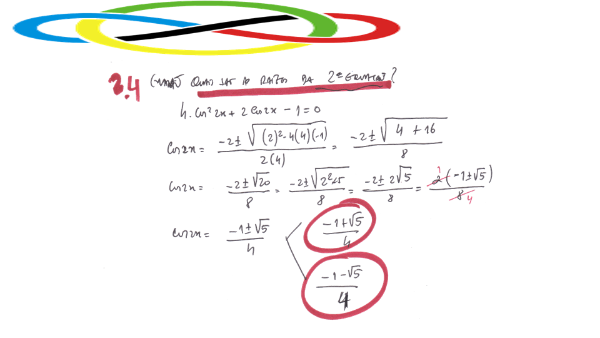 2.4 QUAIS SÃO AS RAÍZES DA 2ª EQUAÇÃO?
4.cos²2x + 2cos2x - 1 = 0
cos2x = (-2 ± √((2)² - 4(4)(-1))) / 2(4) = (-2 ± √(4 + 16)) / 8
cos2x = (-2 ± √20) / 8 = (-2 ± √(2²×5)) / 8 = (-2 ± 2√5) / 8 = 2(-1 ± √5) / 8 1 4
cos2x = (-1 ± √5) / 4 < (-1 + √5) / 4
(-1 - √5) / 4